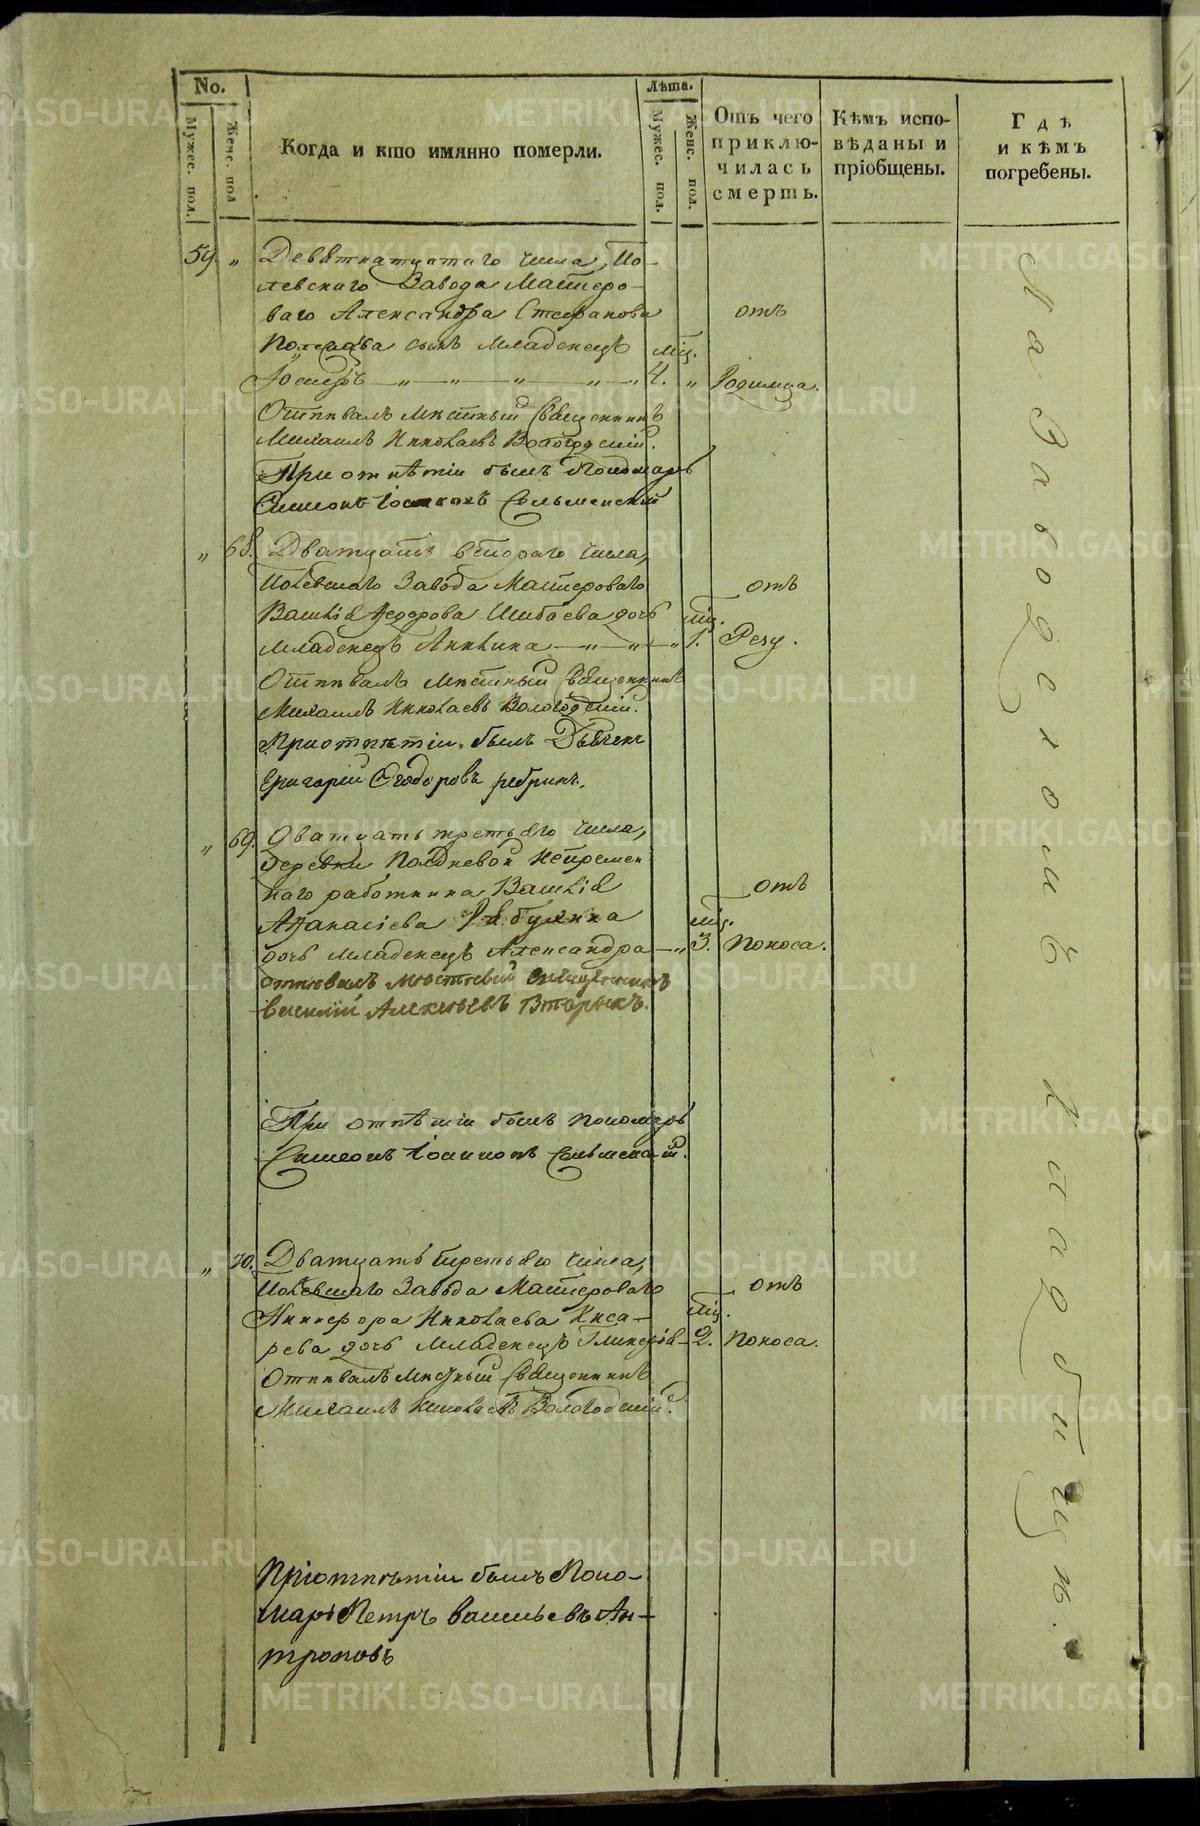 No.
Мужес. пол.
Женс. пол
Когда и кто имянно померли.
Лѣта.
Мужес. пол.
Женс. пол.
Отъ чего приключилась смерть.
Кѣмъ исповѣданы и пріобщены.
Гдѣ и кѣмъ погребены.
59. „ Девятнатцатаго числа, По-
левскаго Завода Мастеро-
ваго Александра Стефанова
сынъ младенецъ
Іосифъ — „ — „ — „ — „ — „
мѣс.
4. „
отъ
Родимца.
Отпѣвалъ мѣстный Священникъ
Михаилъ Николаевъ Вологодскій.
При отпѣтіи былъ Пономарь
Симеонъ Сельменскій
„ 68. Дватцать втораго числа,
Полевскаго Завода Мастероваго
Василія Федорова Шибаева дочь
младенецъ Аннина — „ — „ — „
мѣс.
1.
отъ
Резу.
Отпѣвалъ мѣстный Священникъ
Михаилъ Николаевъ Вологодскій.
При отпѣтіи былъ Дьячекъ
Григорий Ѳеодоровъ ребринъ.
„ 69. Дватцать третьяго числа,
деревни Полдневой Непремен-
наго работника Василія
Афанасіева
дочь младенецъ Александра — „
мѣс.
3.
отъ
Поноса.
отпевалъ местный священникъ
василий Алексѣевъ Вторыхъ.
При отпѣтіи былъ пономарь
Симеонъ Іоанновъ Сельменскій.
„ 70. Дватцать третьяго числа,
Полевскаго Завода Мастероваго
Никифора Николаева Киса-
рева дочь младенецъ Гликерія —
мѣс.
2.
отъ
поноса.
Отпѣвалъ местный Священникъ
Михаилъ Николаевъ Вологодскій.
Приотпѣтіи былъ Поно-
марь Петръ васильевъ Ан-
троповъ
На Заводскомъ кладбищѣ.
METRIKI.GASO-URAL.RU